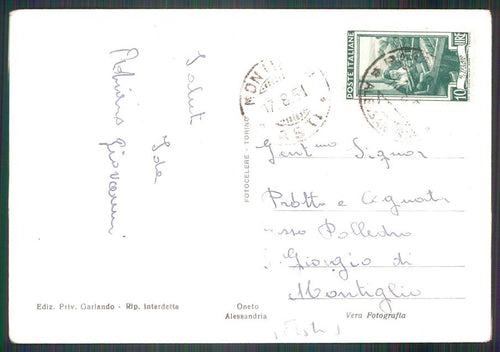 Saluti
Ida
Giovanni
POSTE ITALIANE
10 LIRE
MONTI
17.8.51
FOTOCELERE - TORINO
Gent.mo Signor
Protto e Cognata
Polledro
Giorgio di
Montiglio
(Asti)
Ediz. Priv. Garlando - Rip. Interdetta
Oneto
Alessandria
Vera Fotografia